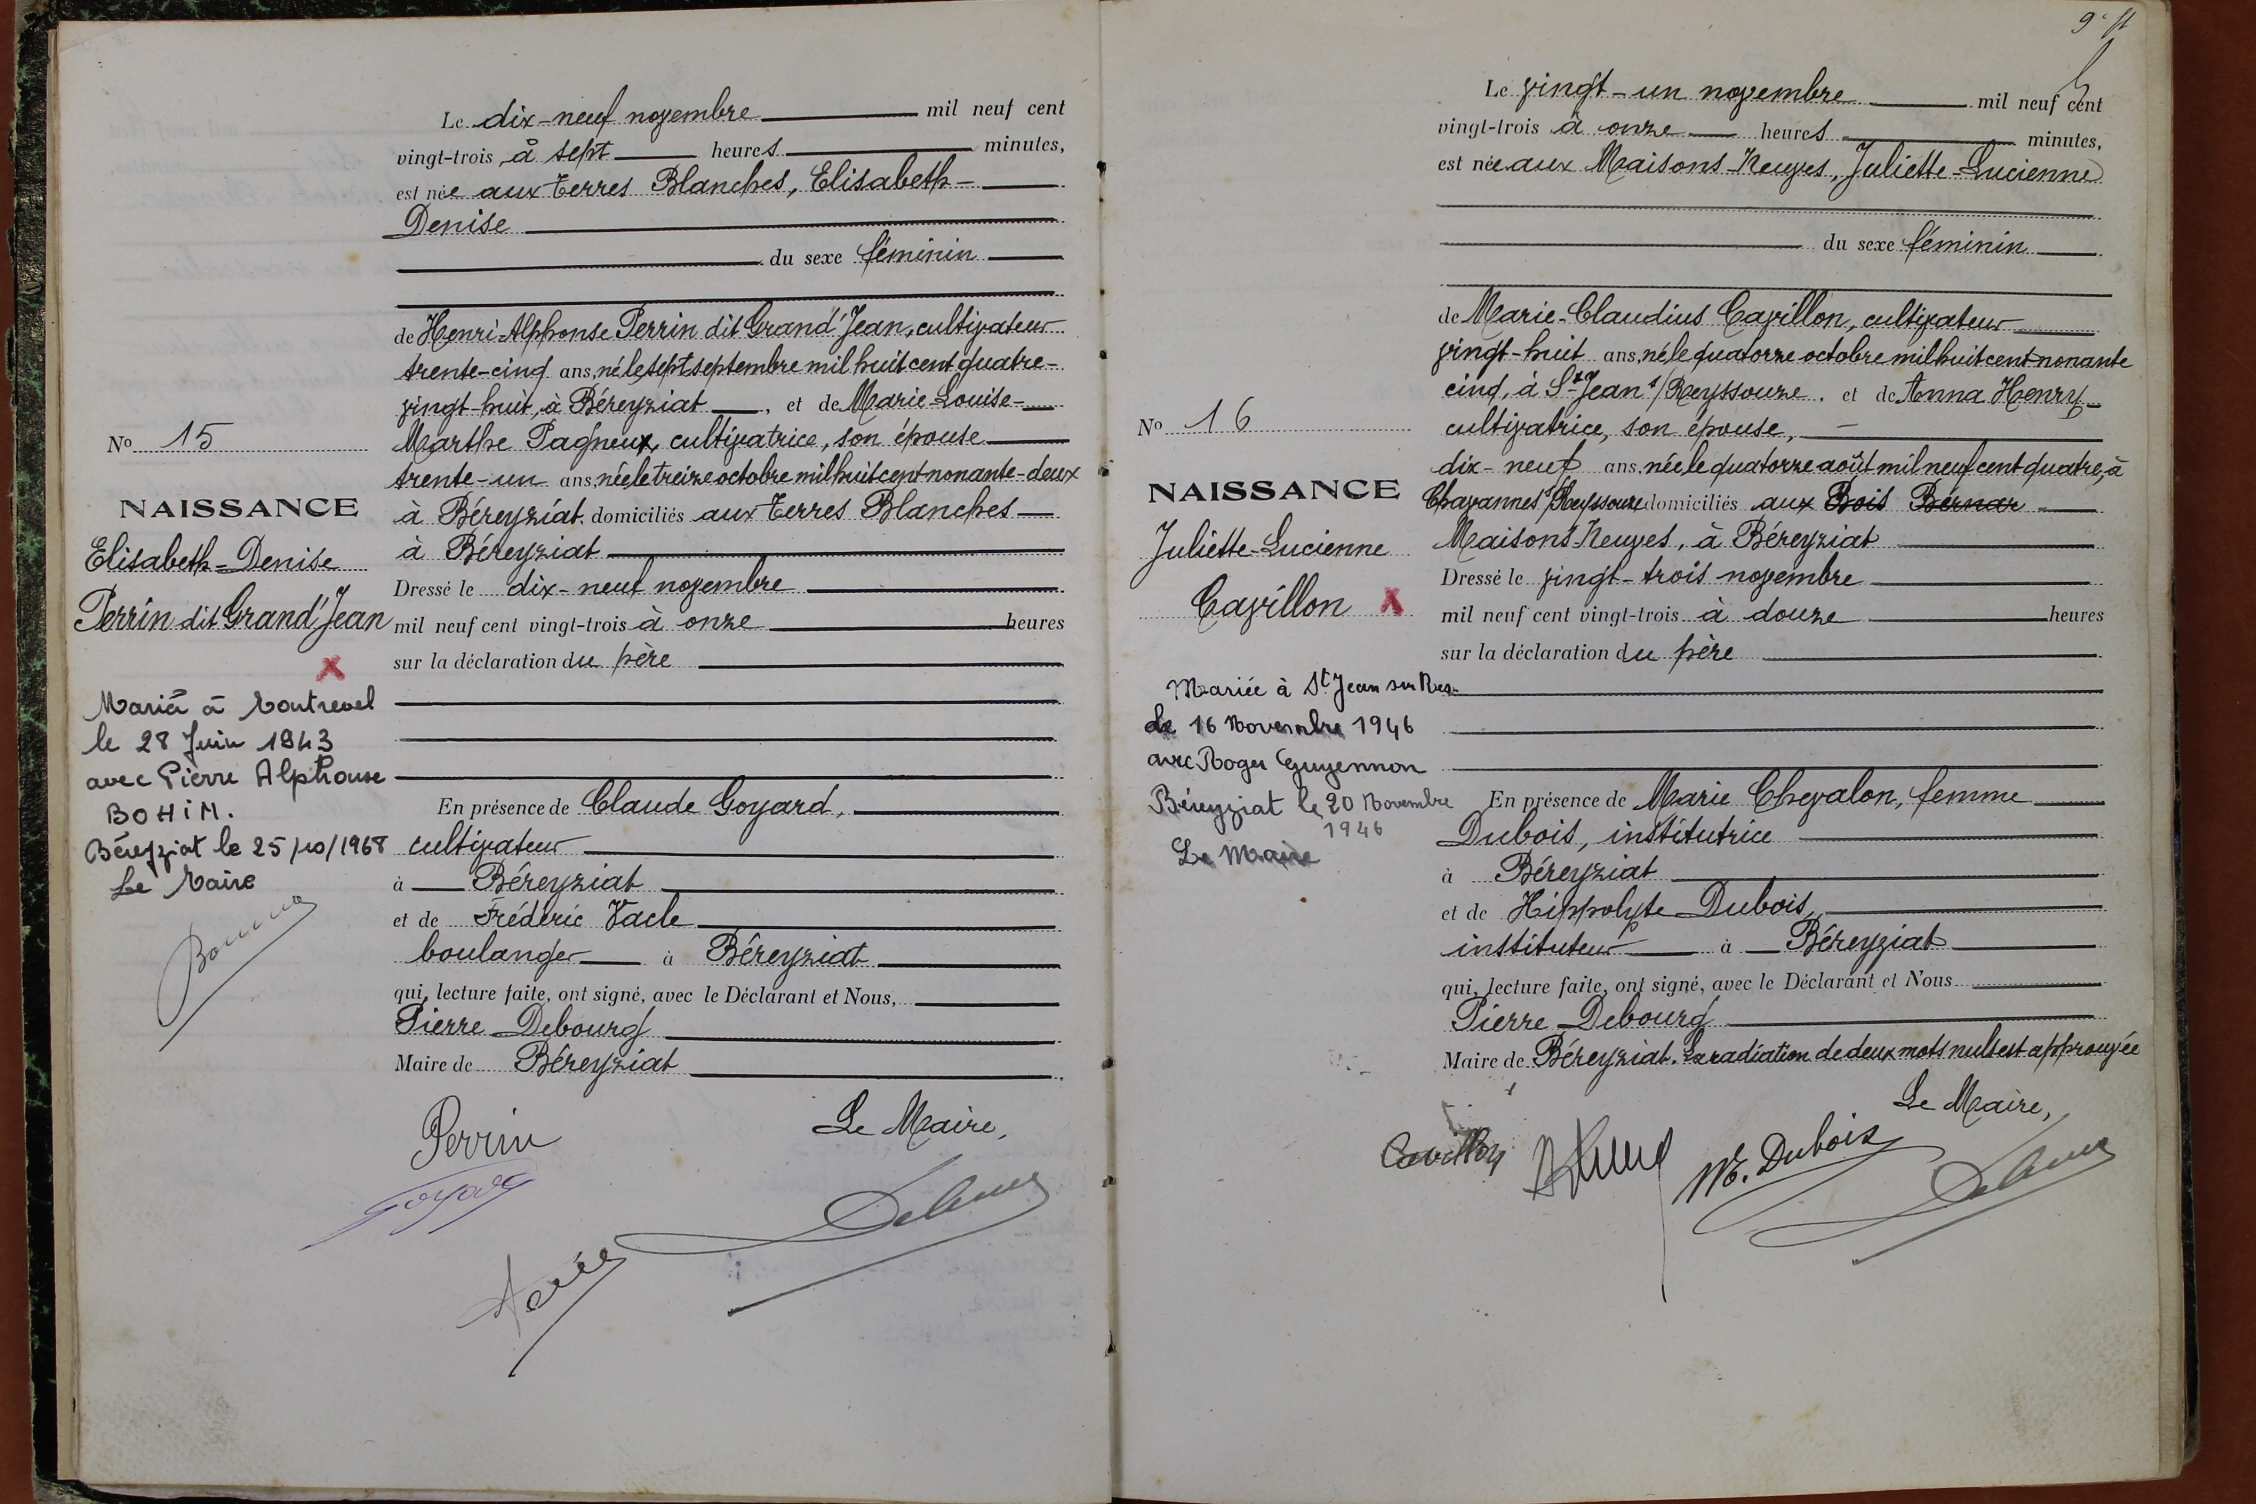 Le dix-neuf novembre mil neuf cent
vingt-trois, à sept heures minutes,
est née aux Terres Blanches, Elisabeth-
Denise
du sexe féminin
de Henri-Alphonse Perrin dit Grand'Jean, cultivateur
trente-cinq ans, né le sept septembre mil huit cent quatre-
vingt-huit, à Béreyziat, et de Marie-Louise-
Marthe Pagneux, cultivatrice, son épouse
trente-un ans, née le treize octobre mil huit cent nonante-deux
à Béreyziat, domiciliés aux Terres Blanches
à Béreyziat
Dressé le dix-neuf novembre
mil neuf cent vingt-trois à onze heures
sur la déclaration du père
En présence de Claude Goyard,
cultivateur
à Béreyziat
et de Frédéric Vacle
boulanger à Béreyziat
qui, lecture faite, ont signé, avec le Déclarant et Nous,
Pierre Debourg
Maire de Béreyziat
Le Maire,
Perrin
Goyard
No 15
NAISSANCE
Elisabeth-Denise
Perrin dit Grand'Jean
X
Mariée à Montrevel
le 28 Juin 1943
avec Pierre Alphonse
BOHIM.
Béreyziat le 25/10/1968
Le Maire
9e ft
Le vingt-un novembre mil neuf cent
vingt-trois à onze heures minutes,
est née aux Maisons-Neuves, Juliette-Lucienne
du sexe féminin
de Marie-Claudius Cavillon, cultivateur
vingt-huit ans, né le quatorze octobre mil huit cent nonante
cinq, à St-Jean s/Reyssouze. et de Anna Henry
cultivatrice, son épouse,
dix-neuf ans, née le quatorze août mil neuf cent quatre, à
Chavannes s/Reyssouze domiciliés aux Bois Bernar
Maisons-Neuves, à Béreyziat
Dressé le vingt-trois novembre
mil neuf cent vingt-trois à douze heures
sur la déclaration du père
En présence de Marie Chevalon, femme
Dubois, institutrice
à Béreyziat
et de Hippolyte Dubois
instituteur à Béreyziat
qui, lecture faite, ont signé, avec le Déclarant et Nous
Pierre Debourg
Maire de Béreyziat. La radiation de deux mots nuls est approuvée
Le Maire,
Cavillon
M. Dubois
No 16
NAISSANCE
Juliette-Lucienne
Cavillon X
Mariée à St Jean sur Rey.
le 16 Novembre 1946
avec Roger Guyennon
Béreyziat le 20 Novembre
1946
Le Maire